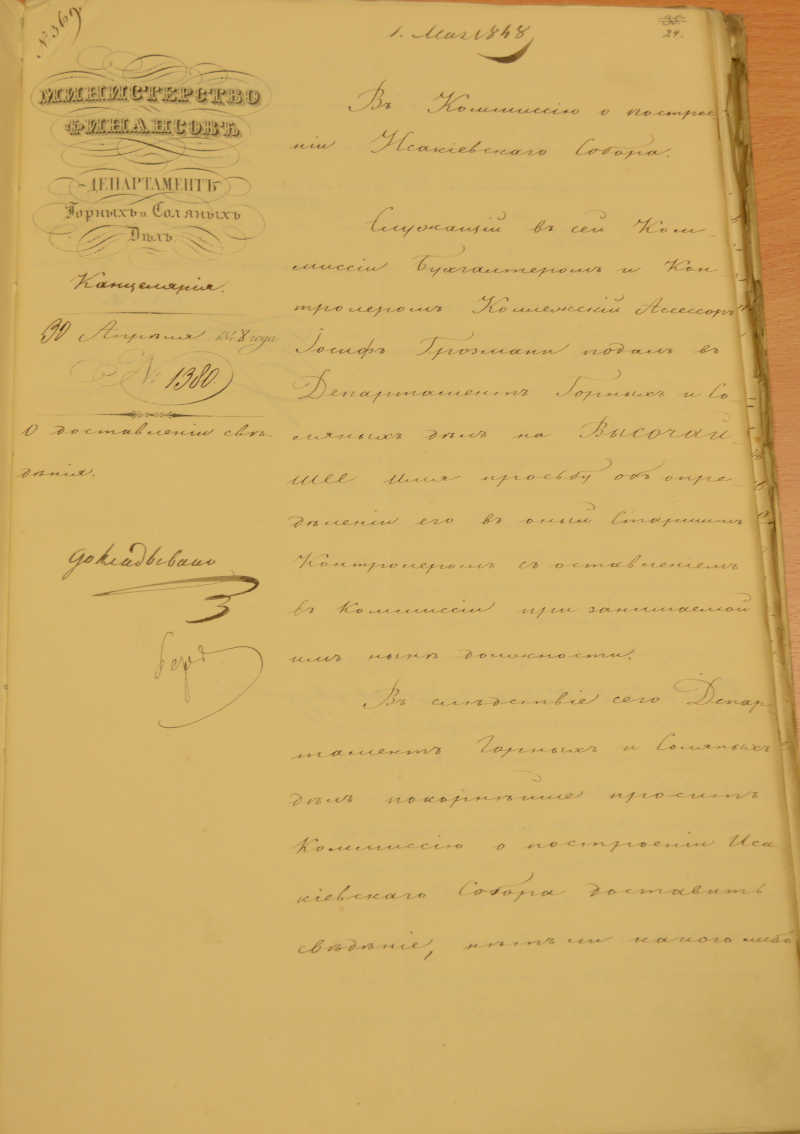 № 369
1. Мая 1848
30
24.
МИНИСТЕРСТВО
ФИНАНСОВЪ
ДЕПАРТАМЕНТЪ
Горныхъ и Соляныхъ
Дѣлъ
Канцелярія.
30 Апрѣля 1848 года
№ 1380
О доставленіи свѣ-
дѣнія.
Докладывано
Въ Коммиссію о построе-
ніи Исакіевскаго Собора.
Служащій въ сей Ком-
миссіи Бухгалтеромъ и Кон
тролеромъ Коллежскій Ассессоръ
Іосифъ Грозманъ подалъ въ
Департаментъ Горныхъ и Со
ляныхъ дѣлъ на Высочай
шее Имя просьбу объ опре
дѣленіи его въ оный Старшимъ
Контролеромъ съ оставленіемъ
въ Коммиссіи при занимаемой
имъ нынѣ должности.
Въ слѣдствіе сего Депар-
таментъ Горныхъ и Соляныхъ
дѣлъ покорнѣйше проситъ
Коммиссію о построеніи Иса
кіевскаго Собора доставить
свѣдѣніе, нѣтъ ли какого либо